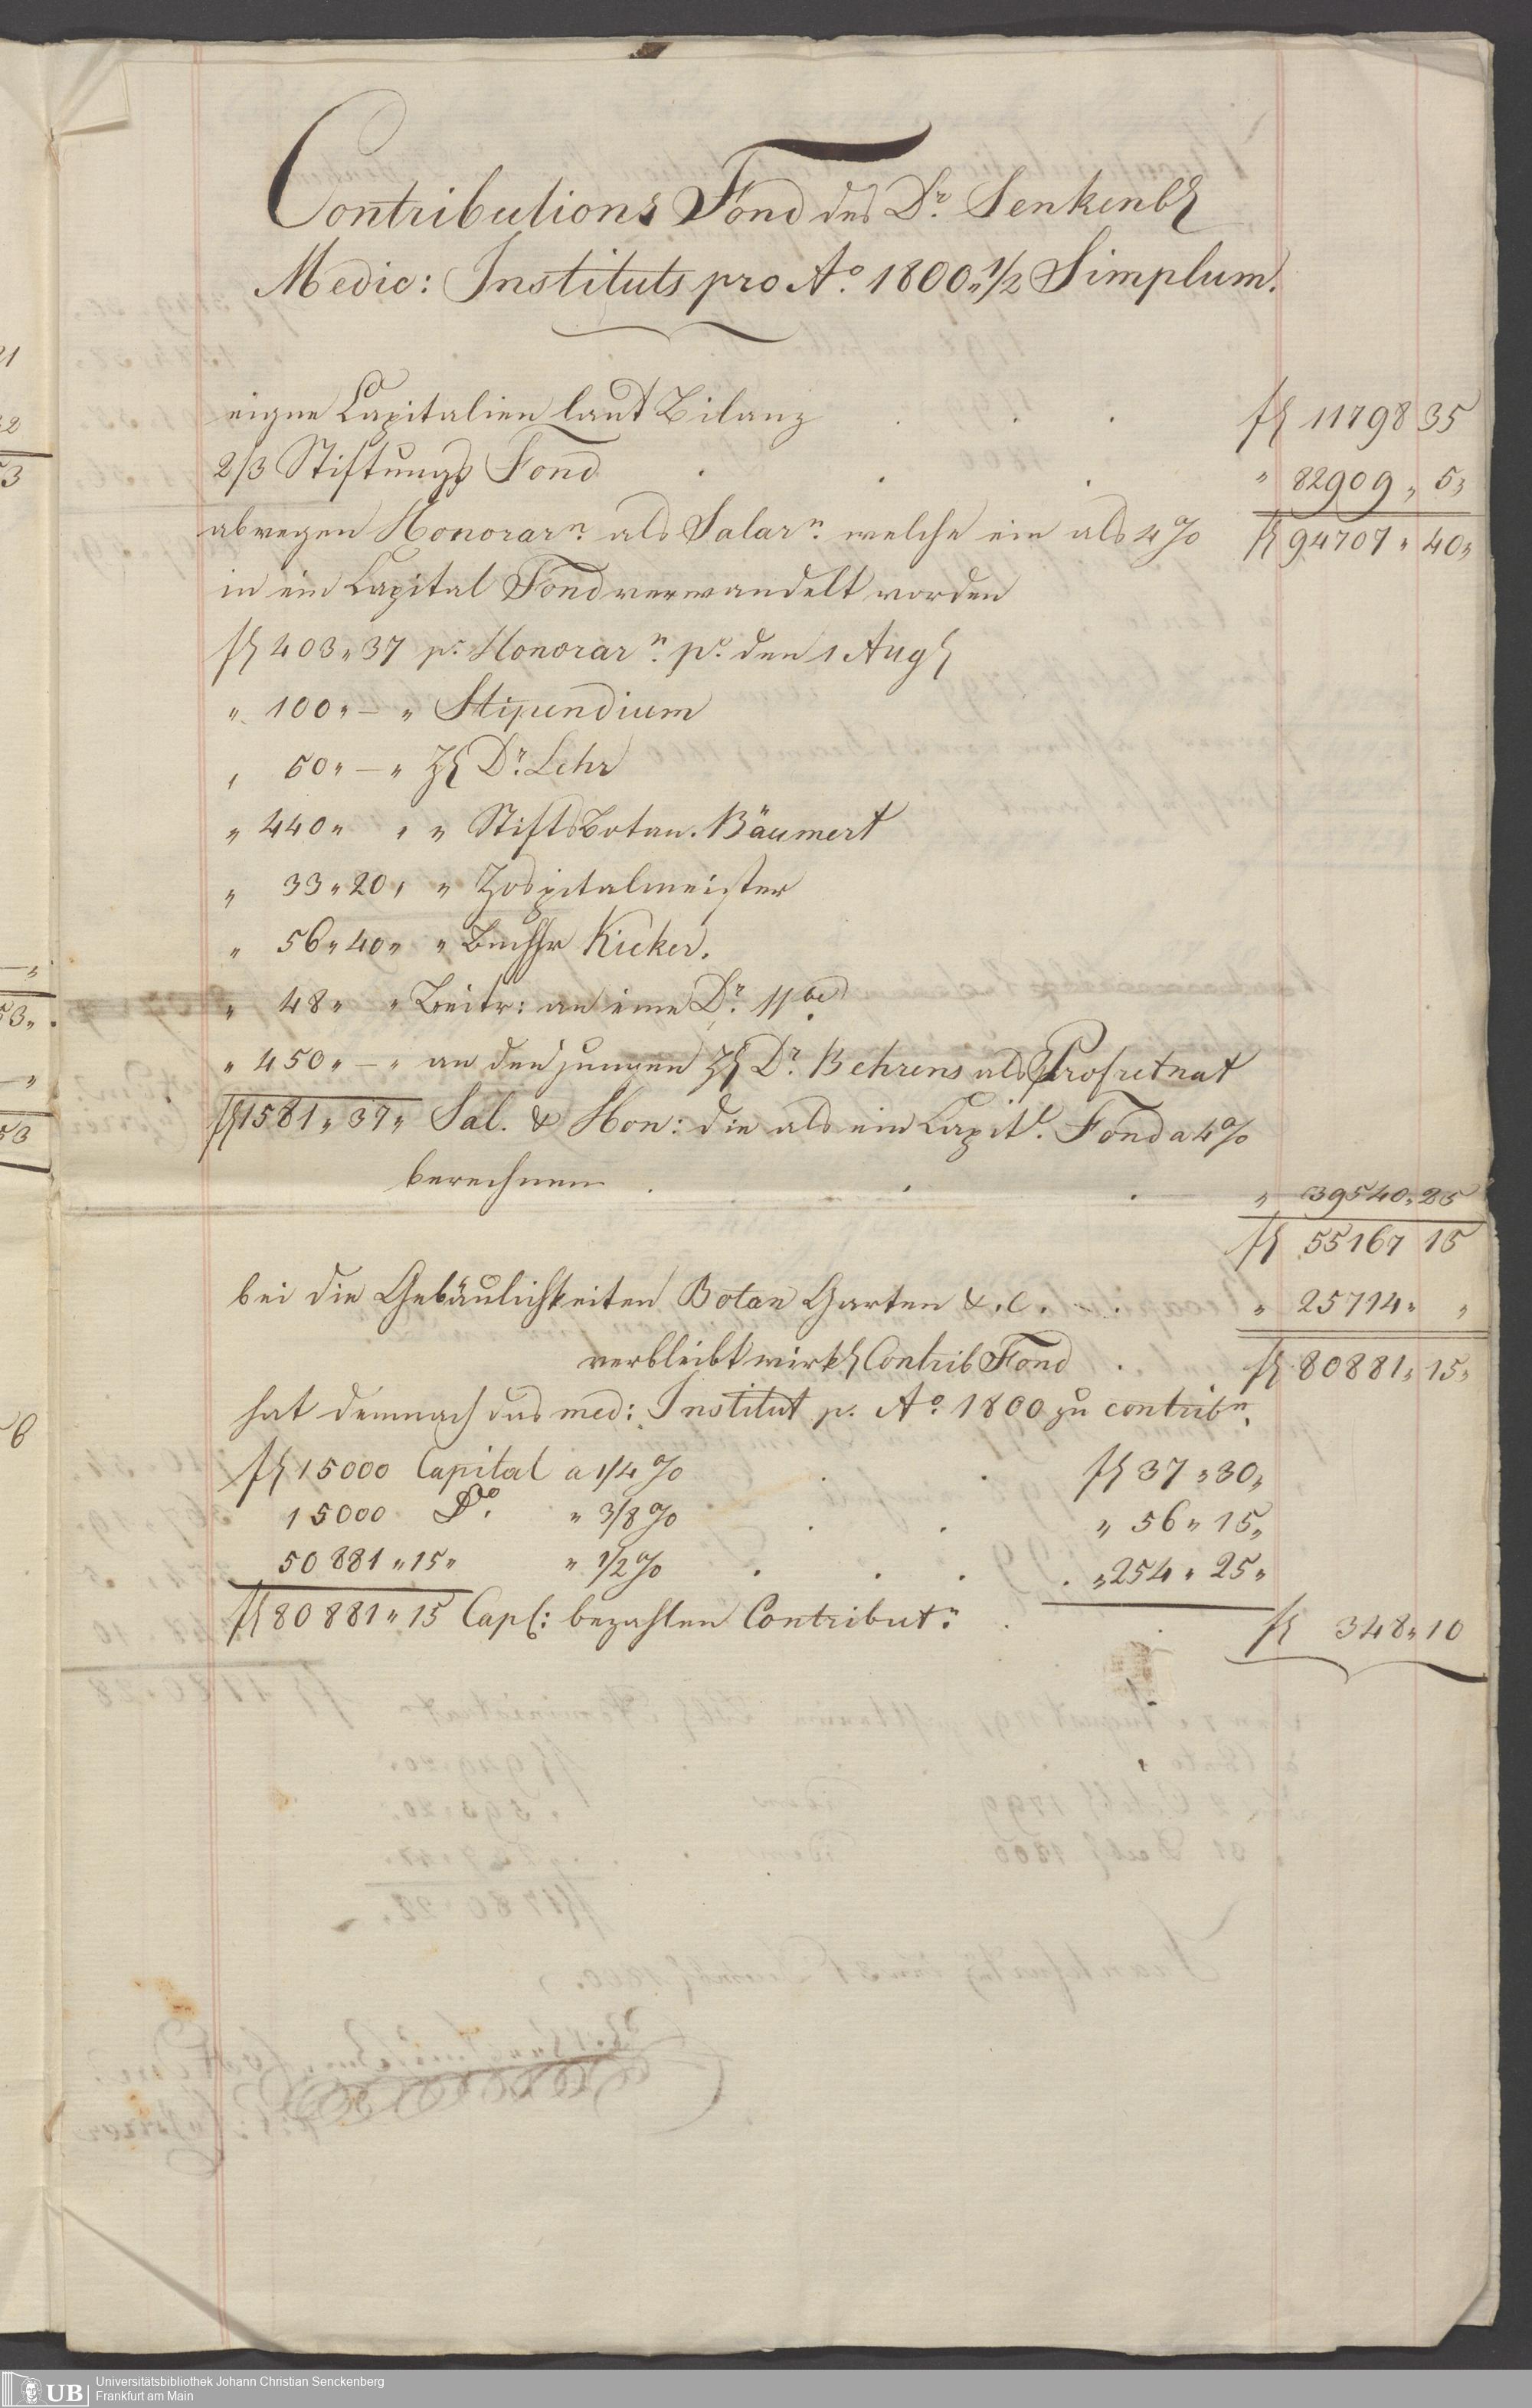 Contributions Fond des Dr. Senkenb
Medic: Instituts pro Ao. 1800 „ 1/2 Simplum.
eigne Capitalien laut Bilanz . . . f 11798 35
2/3 Stiftungs Fond . . . „ 82909 „ 5 „
ab wegen Honorarn. als Salarn. welche ein als 4 % f 94707 „ 40 „
in ein Capital Fond verwandelt worden
f 403 „ 37 pr. Honorarn. po. den 1 Aug
„ 100 „ — „ Stipendium
„ 50 „ — „ H Dr. Lehr
„ 440 „ „ „ Stifts Botan. Bäumert
„ 33 „ 20 „ „ Hospitalmeister
„ 56 „ 40 „ „ Buchhr Kieker.
„ 48 „ „ Beitr: an eine Dr.
„ 450 „ — „ an den jungen H Dr. Behrens als
f 1581 „ 37 „ Sal. & Hon: die als ein Capitl. Fond a 4 %
berechnen . . . „ 39540 „ 25
f 55167 15
bei die Gebäulichkeiten Botan Garten &.c. . . „ 25714 „ „
verbleibt wirkl Contrib Fond . f 80881 „ 15 „
hat demnach das med: Institut p. Ao. 1800 zu contribn.
f 15000 Capital a 1/4 % . . f 37 „ 30 „
15000 Do. „ 3/8 % . . „ 56 „ 15 „
50881 „ 15 „ „ 1/2 % . . . . „ 254 „ 25 „
f 80881 „ 15 Capl: bezahlen Contributn. . . f 348 „ 10
UB Universitätsbibliothek Johann Christian Senckenberg
Frankfurt am Main